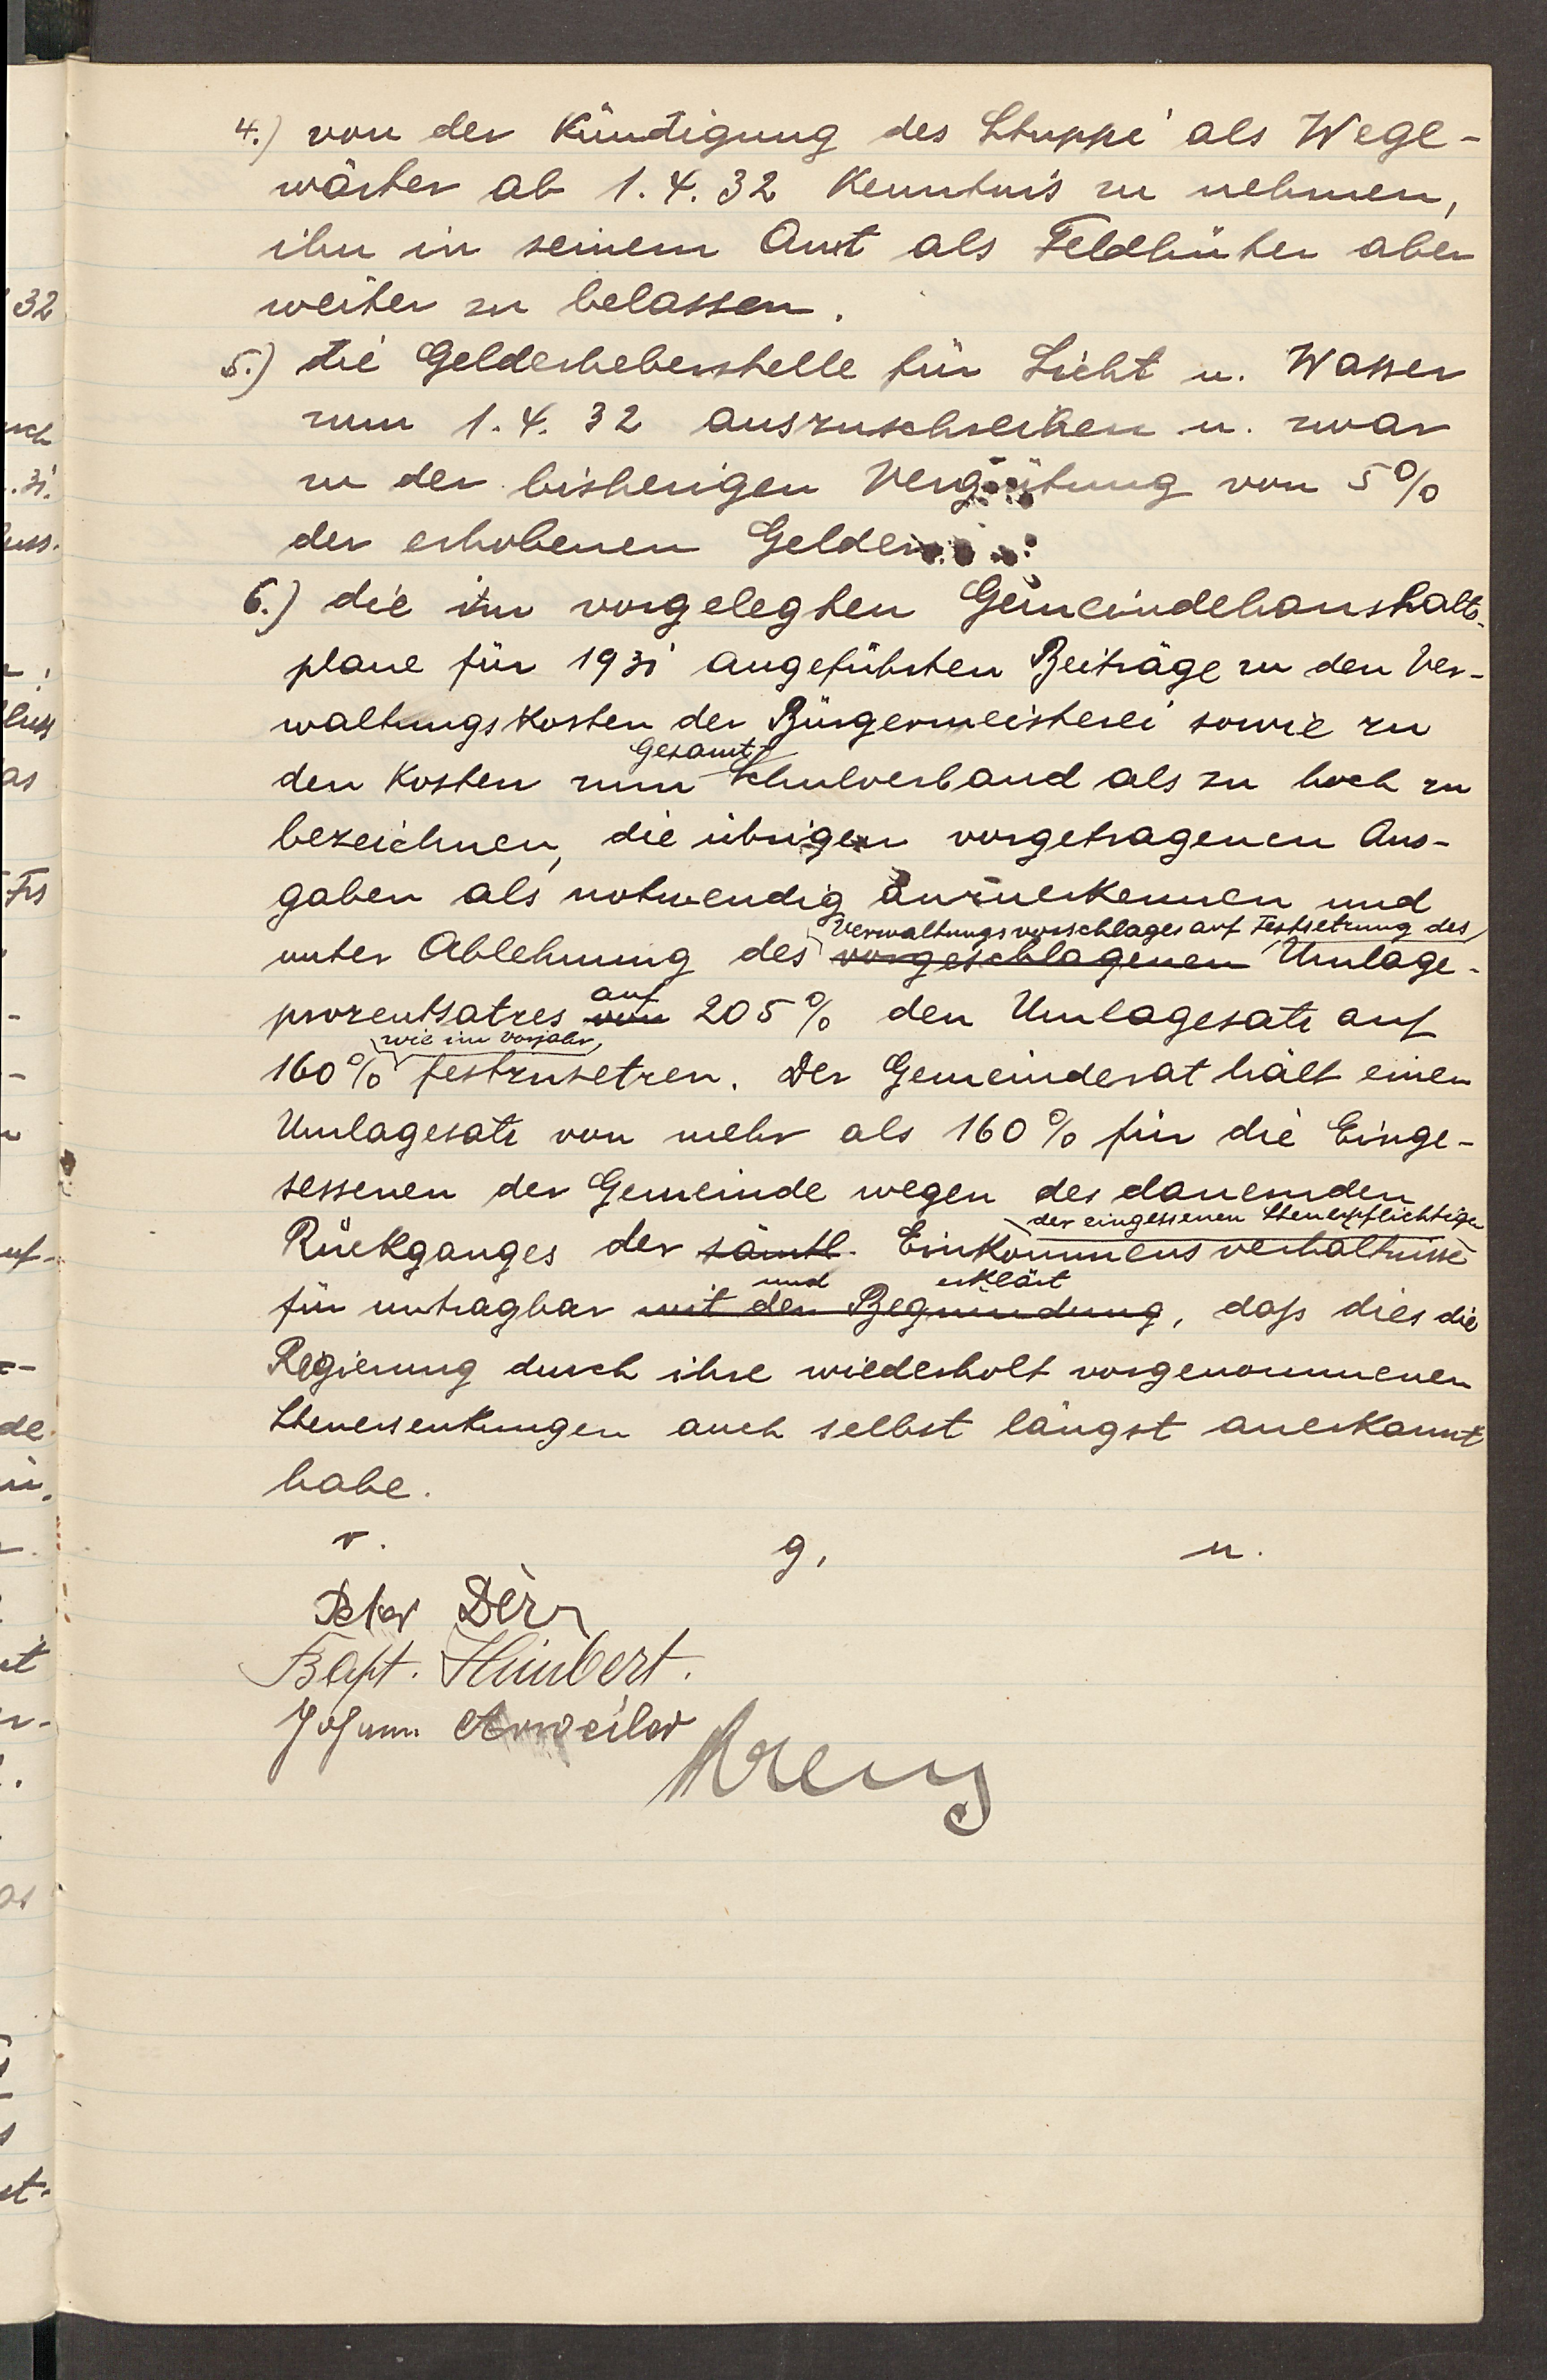 4.) von der Kündigung des Stuppi als Wege-
wärter ab 1.4.32 Kenntnis zu nehmen,
ihn in seinem Amt als Feldhüter aber
weiter zu belassen.
5.) die Gelderheberstelle für Licht u. Wasser
zum 1.4.32 auszuschreiben u. zwar
zu der bisherigen Vergütung von 5%
der erhobenen Gelder.
6.) die im vorgelegten Gemeindehaushalts-
plane für 1931 angeführten Beiträge zu den Ver-
waltungskosten der Bürgermeisterei sowie zu
den Kosten zum Gesamtschulverband als zu hoch zu
bezeichnen, die übrigen vorgetragenen Aus-
gaben als notwendig anzuerkennen und
Verwaltungsvorschlages auf Festsetzung des
unter Ablehnung des vorgeschlagenen Umlage-
auf
prozentsatzes von 205% den Umlagesatz auf
wie im Vorjahr,
160% festzusetzen. Der Gemeinderat hält einen
Umlagesatz von mehr als 160% für die Einge-
sessenen der Gemeinde wegen des dauernden
der eingesessenen Steuerpflichtigen
Rückganges der sämtl. Einkommensverhältnisse
und erklärt
für untragbar mit der Begründung, daß dies die
Regierung durch ihre wiederholt vorgenommenen
Steuersenkungen auch selbst längst anerkannt
habe.
v. g. u.
Peter Dörr
Bapt. Himbert.
Johann Anweiler